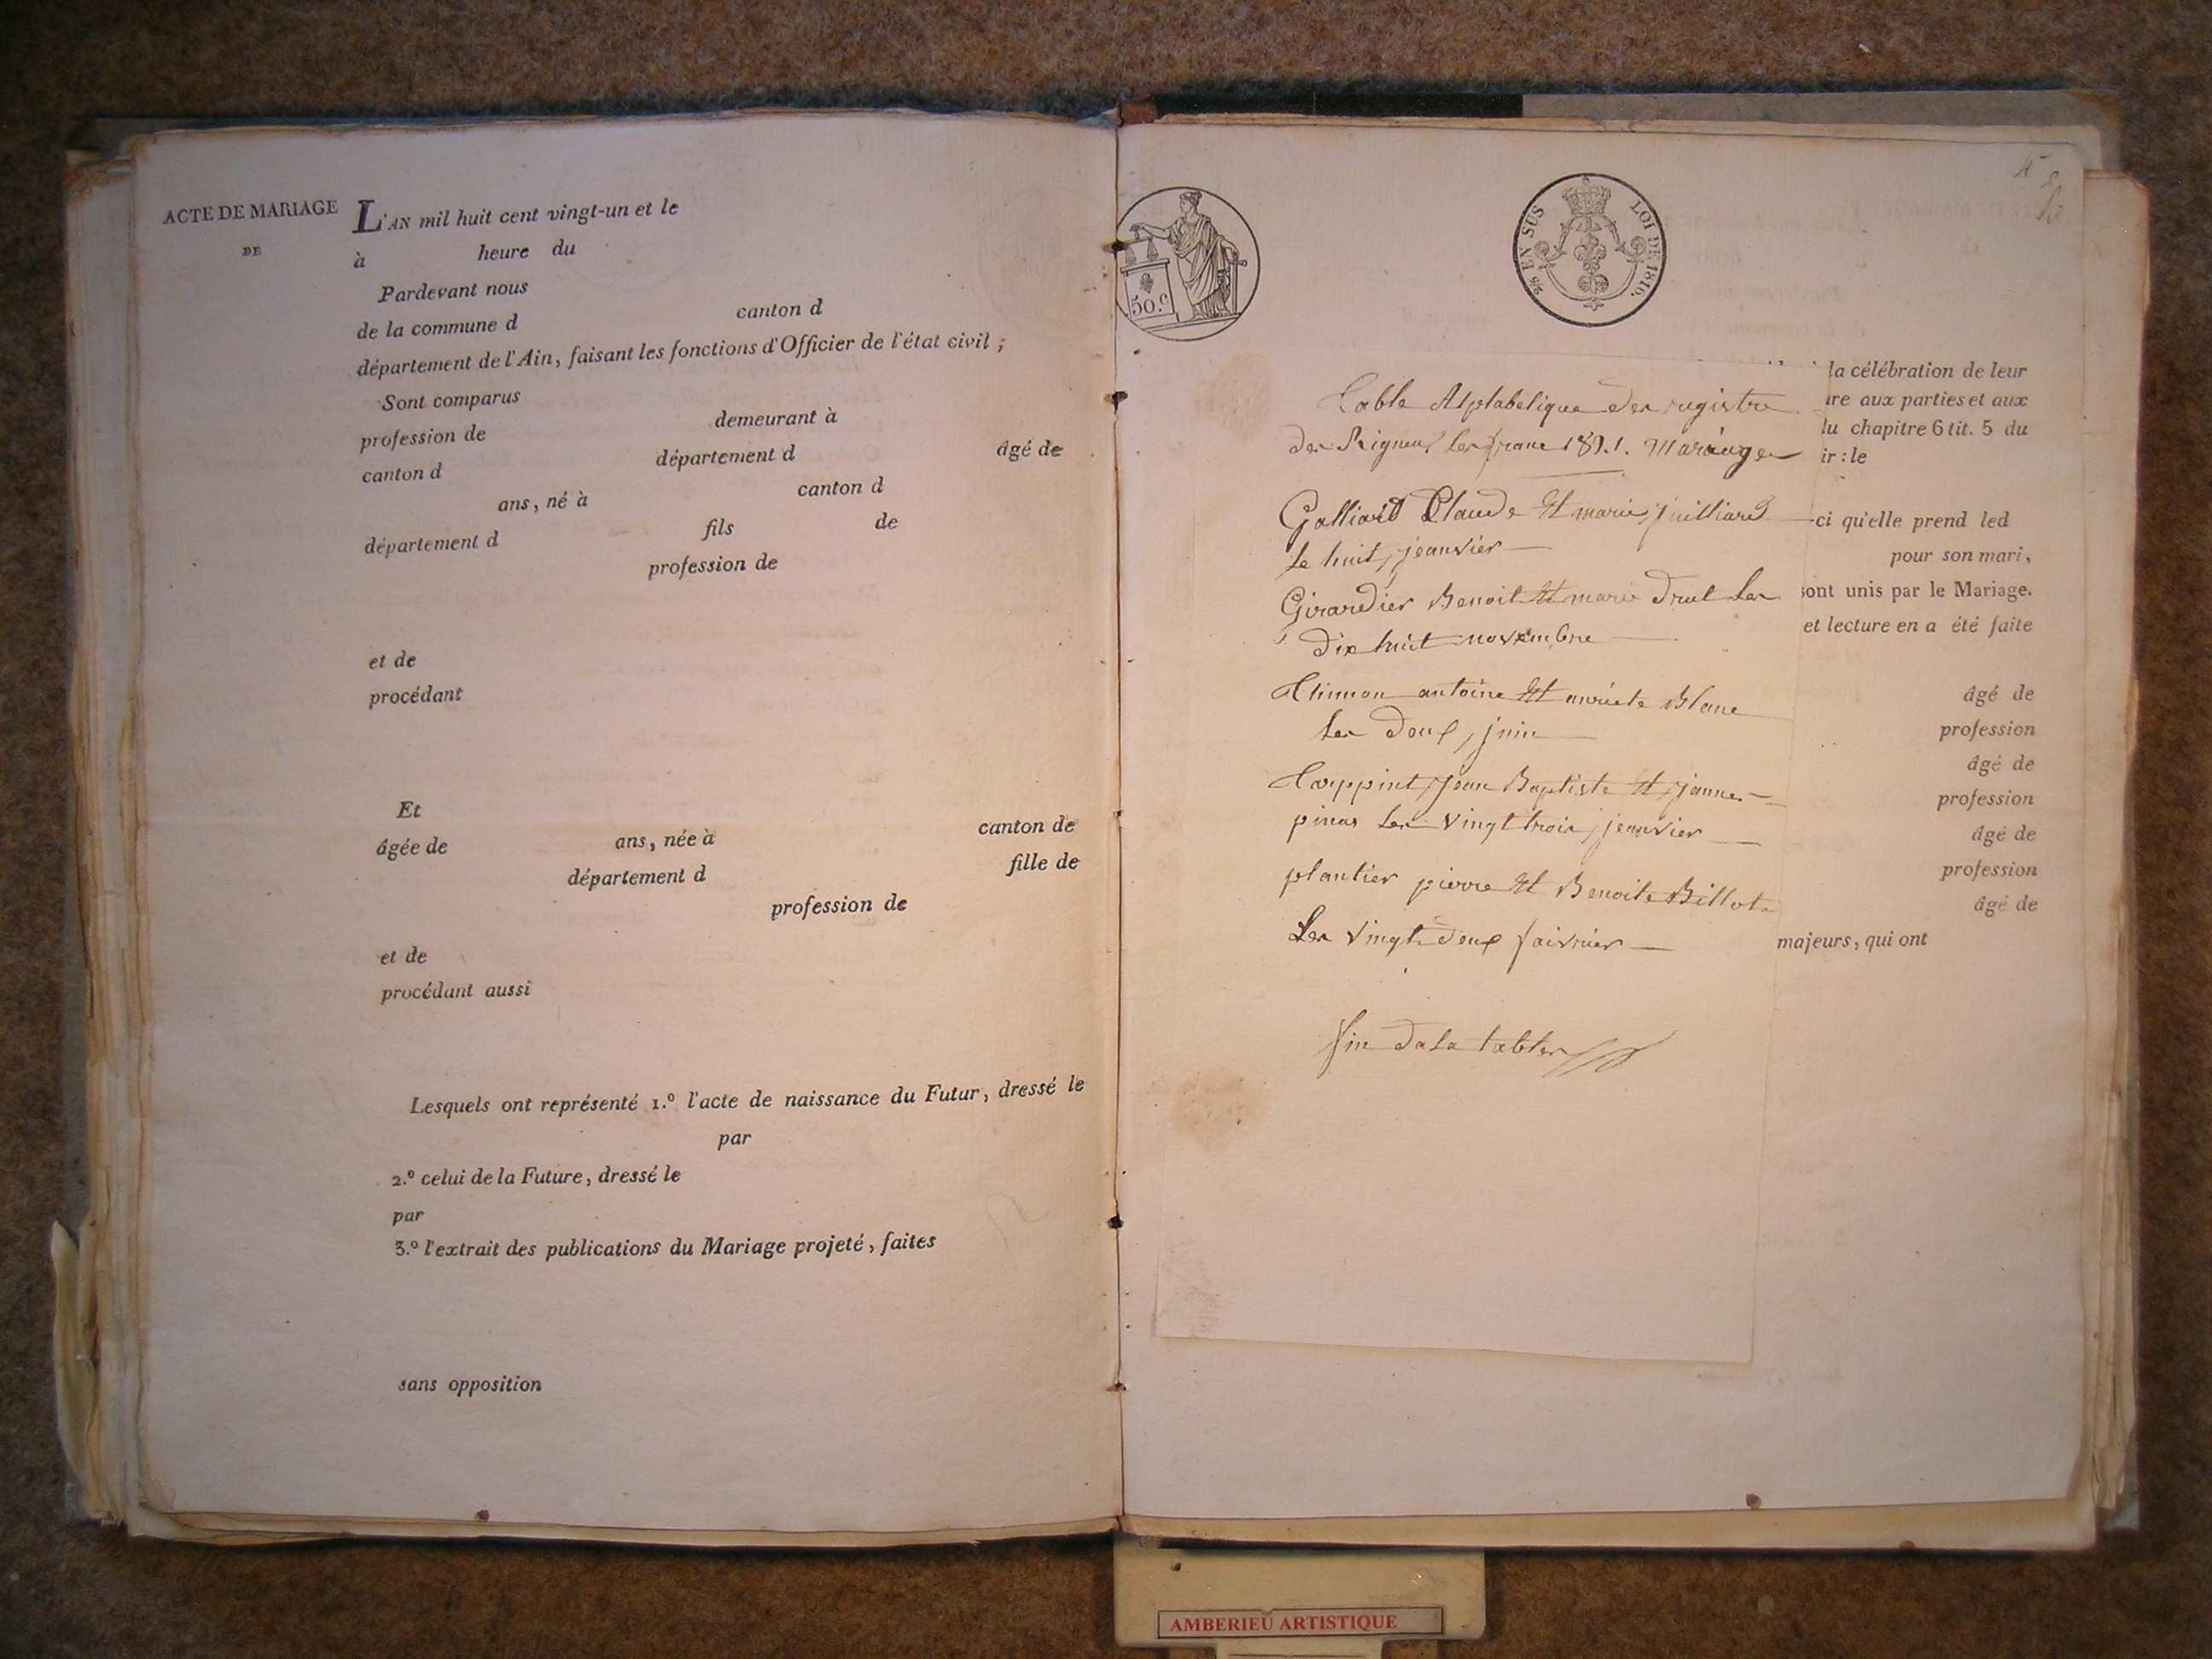 ACTE DE MARIAGE
DE
L'AN mil huit cent vingt-un et le
à heure du
Pardevant nous
de la commune d canton d
département de l'Ain, faisant les fonctions d'Officier de l'état civil ;
Sont comparus
profession de demeurant à
canton d département d âgé de
ans, né à canton d
département d fils de
profession de
et de
procédant
Et
âgée de ans, née à canton de
département d fille de
profession de
et de
procédant aussi
Lesquels ont représenté 1.º l'acte de naissance du Futur, dressé le
par
2.º celui de la Future, dressé le
par
3.º l'extrait des publications du Mariage projeté, faites
sans opposition
50.c
2/5 EN SUS LOI DE 1816.
Table Alphabetique der registre
der Rigneux les franc 1821. Mariage
Galliard Claude Et marie juilliard
Le huit jeanvier
Girardier Benoit Et marie Drut Le
Dix huit novembre
antoine Et Blanc
Le Deux juin
jean Baptiste Et janne
pinas Le vingt trois jeanvier
plantier pierre Et Benoite Billot
Le vingt Deux faivrier
fin Dela table
la célébration de leur
ire aux parties et aux
du chapitre 6 tit. 5 du
ir : le
-ci qu'elle prend led
pour son mari,
sont unis par le Mariage.
et lecture en a été faite
âgé de
profession
âgé de
profession
âgé de
profession
âgé de
majeurs, qui ont
AMBERIEU ARTISTIQUE